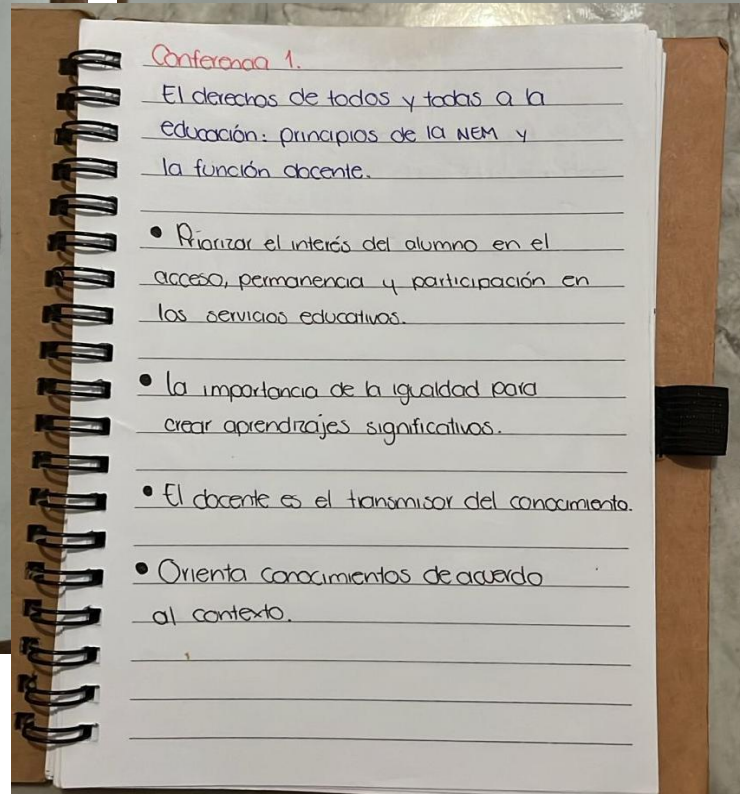 Conferencia 1.
El derechos de todos y todas a la
educación: principios de la NEM y
la función docente.
• Priorizar el interés del alumno en el
acceso, permanencia y participación en
los servicios educativos.
• la importancia de la igualdad para
crear aprendizajes significativos.
• El docente es el transmisor del conocimiento.
• Orienta conocimientos de acuerdo
al contexto.